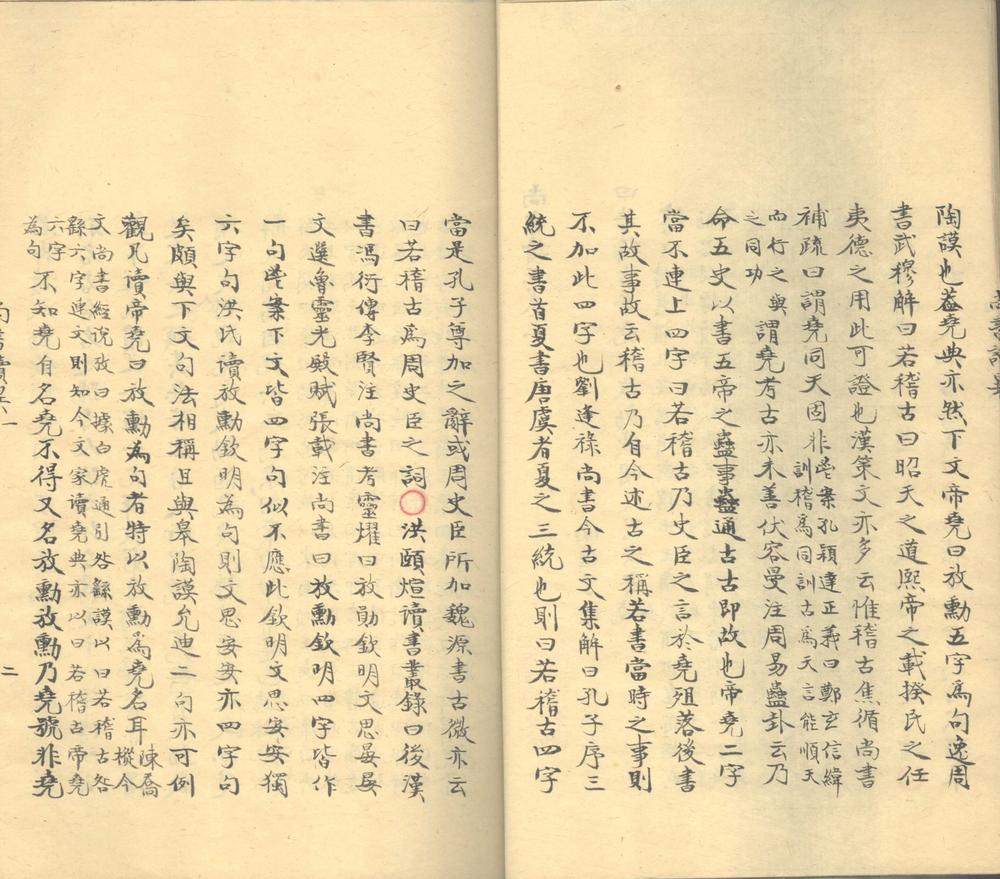 陶謨也蓋堯典亦然下文帝堯曰放勳五字為句逸周
書武穆解曰若稽古曰昭天之道熙帝之載揆民之任
夷德之用此可證也漢策文亦多云惟稽古焦循尚書
補疏曰謂堯同天固非
嵤案孔穎達正義曰鄭玄信緯
訓稽為同訓古為天言能順天
而行之與
之同功
謂堯考古亦未善伏容曼注周易蠱卦云乃
命五史以書五帝之蠱事蠱通古古即故也帝堯二字
當不連上四字曰若稽古乃史臣之言於堯殂落後書
其故事故云稽古乃自今述古之稱若書當時之事則
不加此四字也劉逢祿尚書今古文集解曰孔子序三
統之書首夏書唐虞者夏之三統也則曰若稽古四字
當是孔子尊加之辭或周史臣所加魏源書古微亦云
曰若稽古為周史臣之詞○洪頤煊讀書叢錄曰後漢
書馮衍傳李賢注尚書考靈燿曰放勛欽明文思晏晏
文選魯靈光殿賦張載注尚書曰放勳欽明四字皆作
一句嵤案下文皆四字句似不應此欽明文思安安獨
六字句洪氏讀放勳欽明為句則文思安安亦四字句
矣頗與下文句法相稱且與皋陶謨允迪二句亦可例
觀凡讀帝堯曰放勳為句者特以放勳為堯名耳
陳喬
樅今
文尚書經說攷曰據白虎通引咎繇謨以曰若稽古咎
繇六字連文則知今文家讀堯典亦以曰若稽古帝堯
六字
為句
不知堯自名堯不得又名放勳放勳乃堯號非堯
尚書讀異一
二